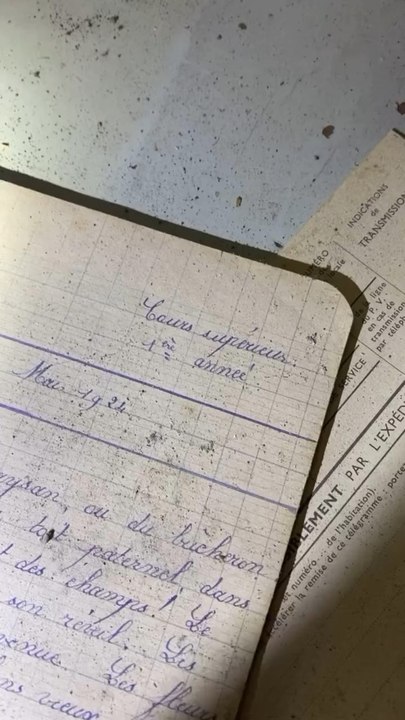 Cours supérieur
1ère année
Mai 1924
ou du bûcheron
toit paternel, dans
des champs ! Le
son réveil. Les
Les fleurs
vieux
INDICATIONS
de
TRANSMISSION
ligne
du P. V.
en cas de
transmission
par téléph
SERVICE
PAR L'EXPÉD
et numéro... de l'habitation).
remise de ce télégramme, porter